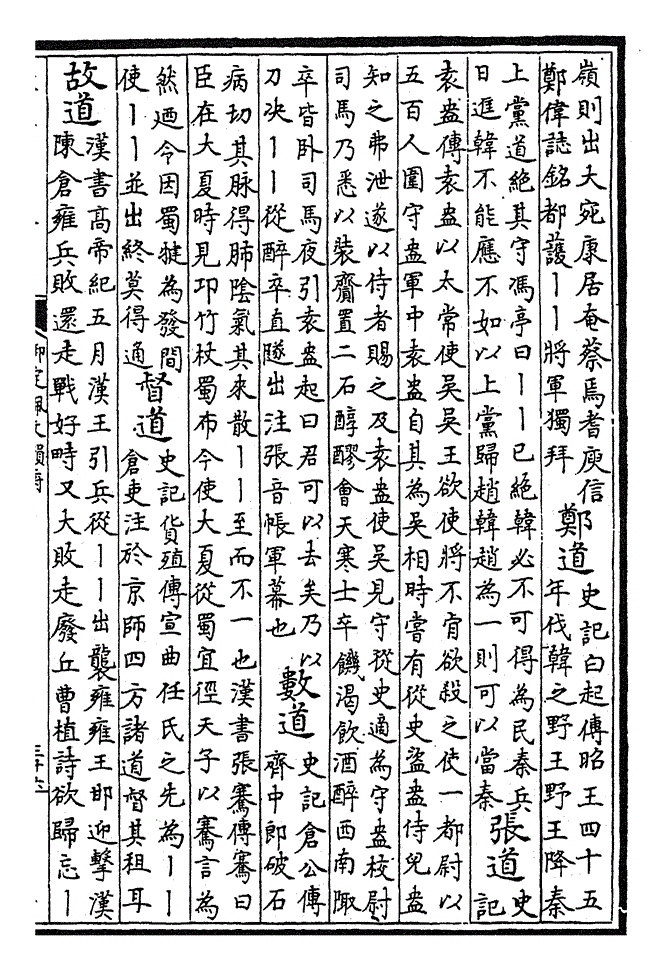 嶺則出大宛康居奄蔡焉耆庾信
鄭偉誌銘都護丨丨將軍獨拜
鄭道
史記白起傳昭王四十五
年伐韓之野王野王降秦
上黨道絶其守馮亭曰丨丨已絶韓必不可得為民秦兵
日進韓不能應不如以上黨歸趙韓趙為一則可以當秦
張道
史
記
袁盎傳袁盎以太常使吳吳王欲使將不肯欲殺之使一都尉以
五百人圍守盎軍中袁盎自其為吳相時嘗有從史盜盎侍兒盎
知之弗泄遂以侍者賜之及袁盎使吳見守從史適為守盎校尉
司馬乃悉以裝齎置二石醇醪會天寒士卒饑渴飲酒醉西南陬
卒皆卧司馬夜引袁盎起曰君可以去矣乃以
刀决丨丨從醉卒直隧出注張音帳軍幕也
數道
史記倉公傳
齊中郎破石
病切其脉得肺陰氣其來散丨丨至而不一也漢書張騫傳騫曰
臣在大夏時見卭竹杖蜀布今使大夏從蜀宜徑天子以騫言為
然廼令因蜀犍為發間
使丨丨並出終莫得通
督道
史記貨殖傳宣曲任氏之先為丨丨
倉吏注於京師四方諸道督其租耳
故道
漢書高帝紀五月漢王引兵從丨丨出襲雍雍王邯迎擊漢
陳倉雍兵敗還走戰好畤又大敗走廢丘曹植詩欲歸忘丨
御定佩文韻府